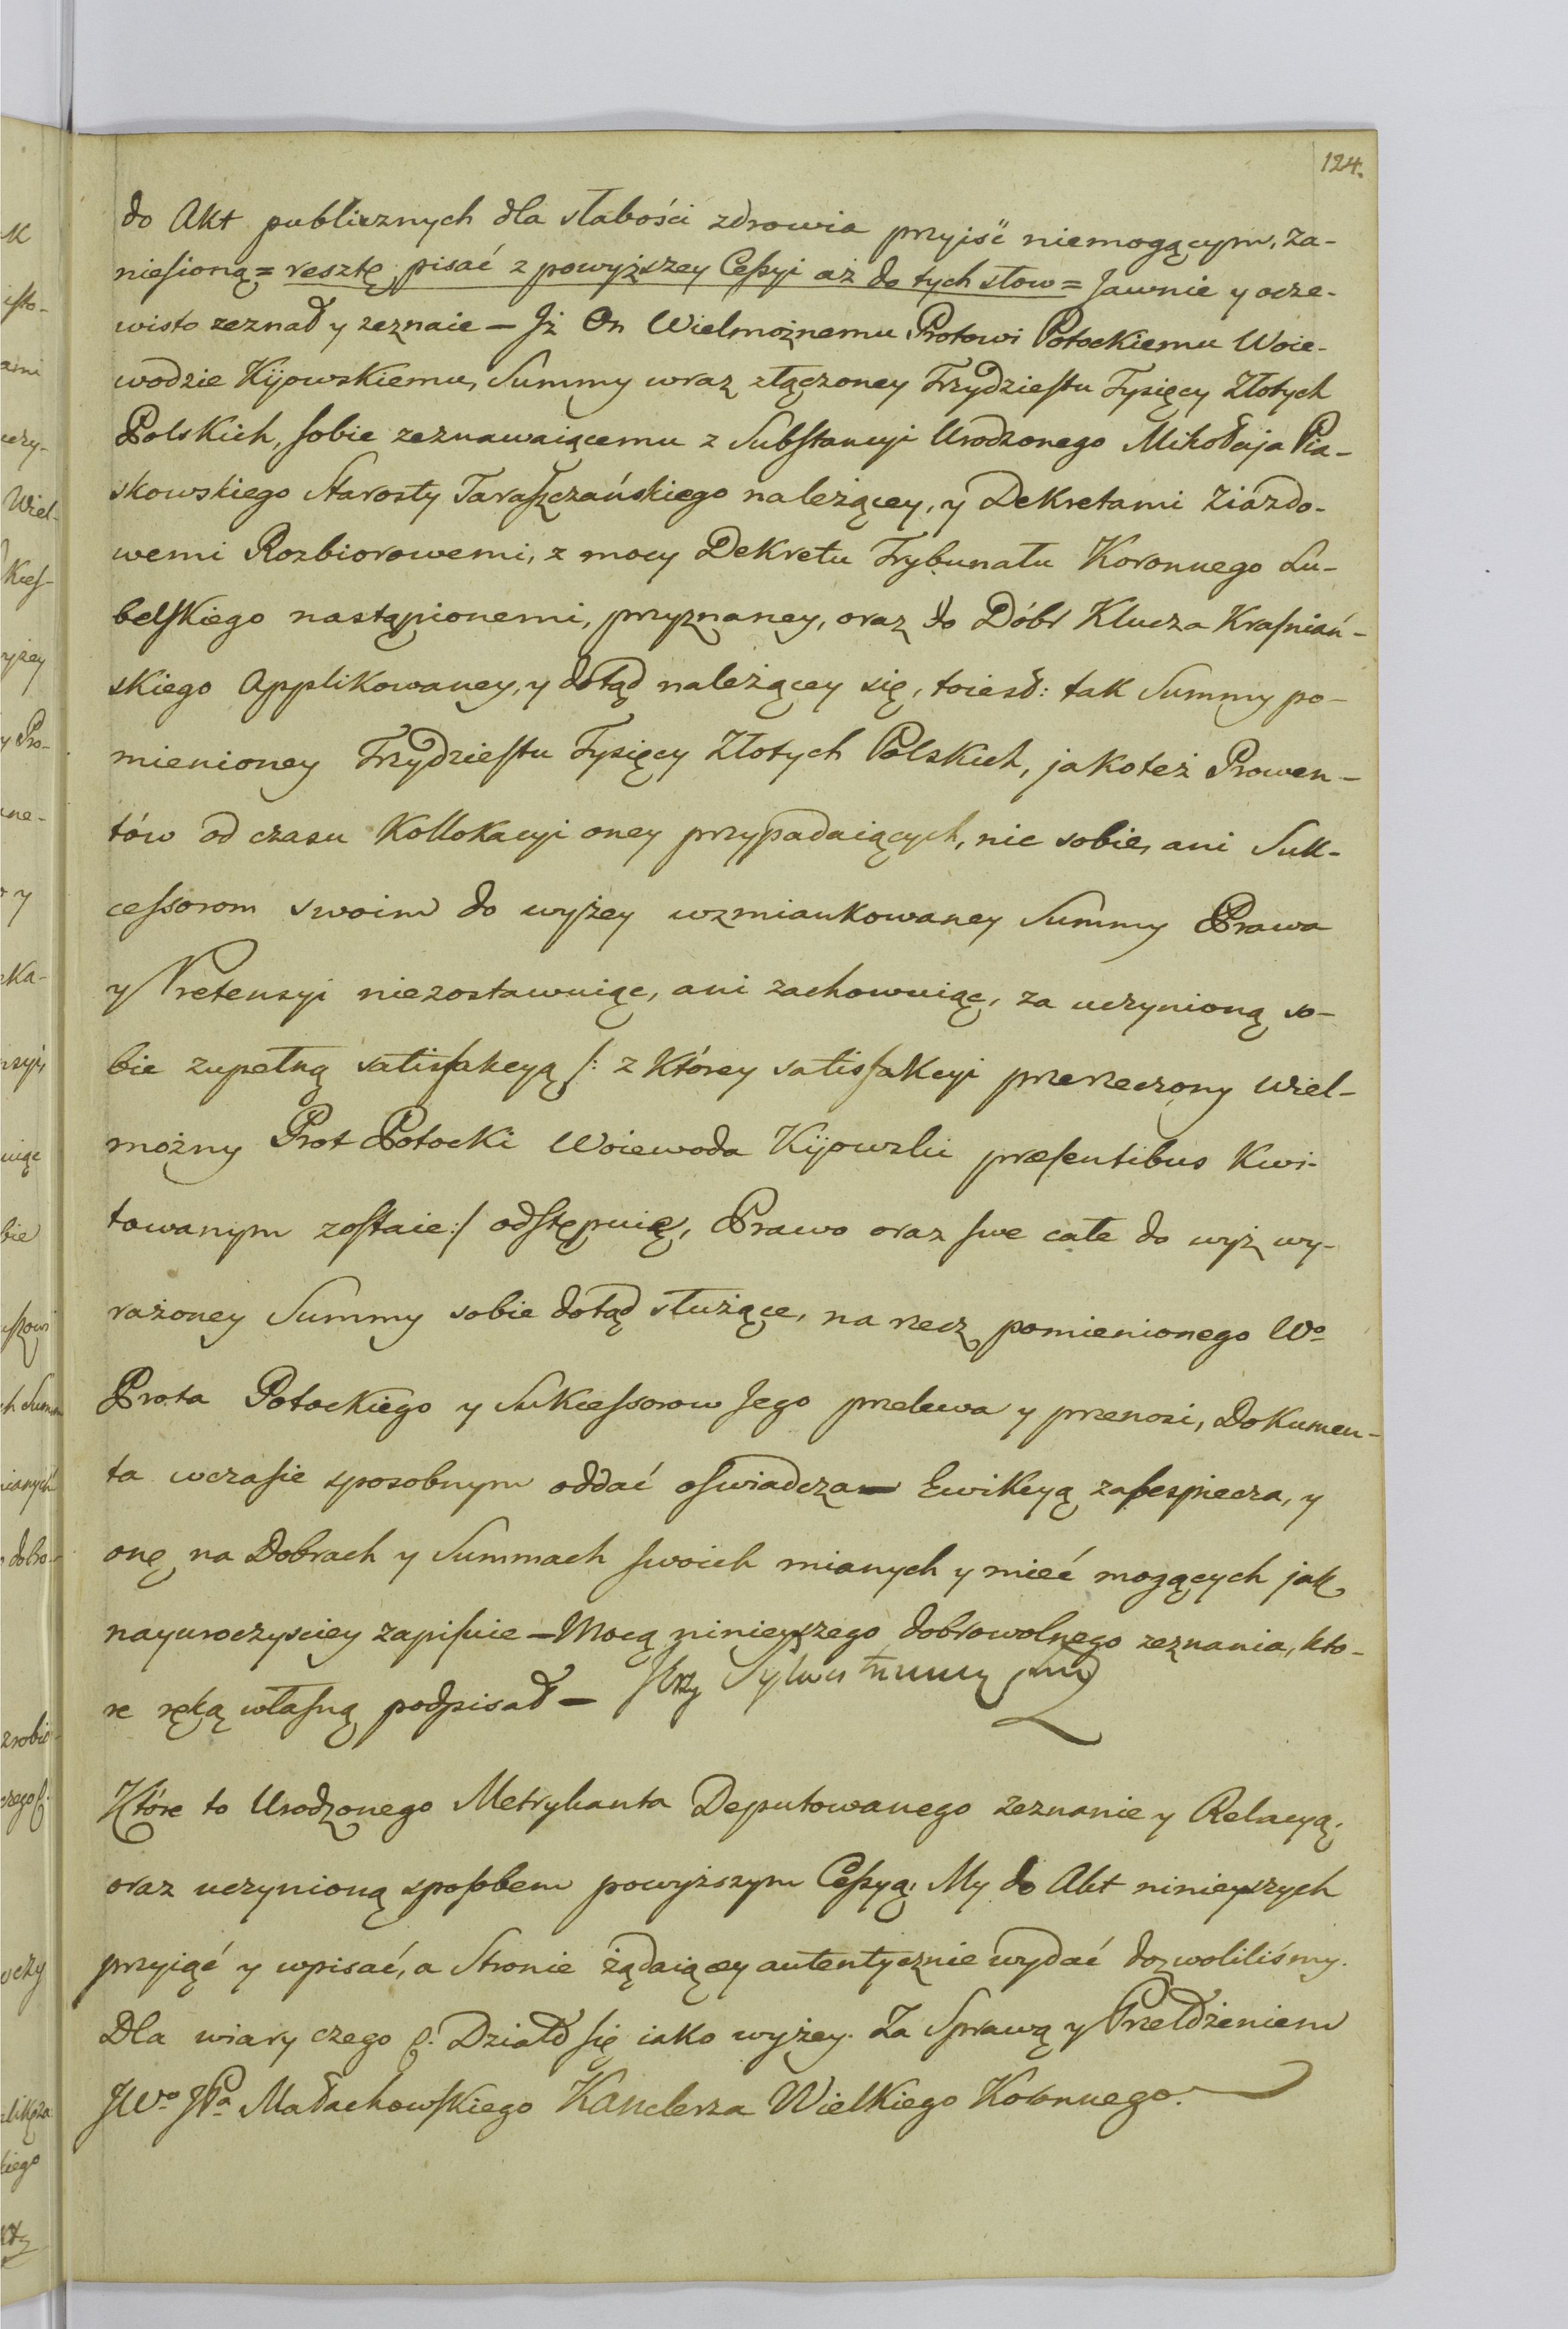 124.
do Akt publicznych dla słabości zdrowia przyiść niemogącym, za-
niesioną = resztę pisać z powyższey Cessyi aż do tych słow = Jawnie y ocze-
wisto zeznał y zeznaie — Jż On Wielmożnemu Protowi Potockiemu Woie-
wodzie Kijowskiemu, Summy wraz złączoney Trzydziestu Tysięcy Złotych
Polskich, sobie zeznawaiącemu z Substancyi Urodzonego Mikołaja Pia-
skowskiego Starosty Taraszczańskiego należącey, y Dekretami Ziazdo-
wemi Rozbiorowemi, z mocy Dekretu Trybunału Koronnego Lu-
belskiego nastąpionemi, przyznaney, oraz do Dóbr Klucza Krasniań-
skiego Applikowaney, y dotąd należącey się, toiest: tak Summy po-
mienioney Trzydziestu Tysięcy Złotych Polskich, jakoteż Prowen-
tów od czasu Kollokacyi oney przypadaiących, nic sobie, ani Suk-
cessorom swoim do wyżey wzmiankowaney Summy Prawa
y Pretensyi niezostawuiąc, ani zachowuiąc, za uczynioną so-
bie zupełną satisfakcyą /: z Którey satisfakcyi przerzeczony Wiel-
możny Prot Potocki Woiewoda Kijowski præsentibus Kwi-
towanym zostaie :/ odstępuię, Prawo oraz swe całe do wyż wy-
rażoney Summy sobie dotąd służące, na rzecz pomienionego Wo
Prota Potockiego y Sukcessorow Jego przelewa y przenosi, Dokumen-
ta wczasie sposobnym oddać oswiadcza — Ewikcyą zabespiecza, y
onę na Dobrach y Summach swoich mianych y mieć mogących jak
nayuroczysciey zapisuie — Mocą ninieyszego dobrowolnego zeznania, kto-
re ręką własną podpisał —
Które to Urodzonego Metrykanta Deputowanego zeznanie y Relacyą,
oraz uczynioną sposobem powyższym Cessyą, My do Akt ninieyszych
przyiąć y wpisać, a Stronie żądaiącey autentycznie wydać dozwoliliśmy.
Dla wiary czego &. Działo się iako wyżey. Za Sprawą y Przełożeniem
JWo JPa Małachowskiego Kanclerza Wielkiego Koronnego.